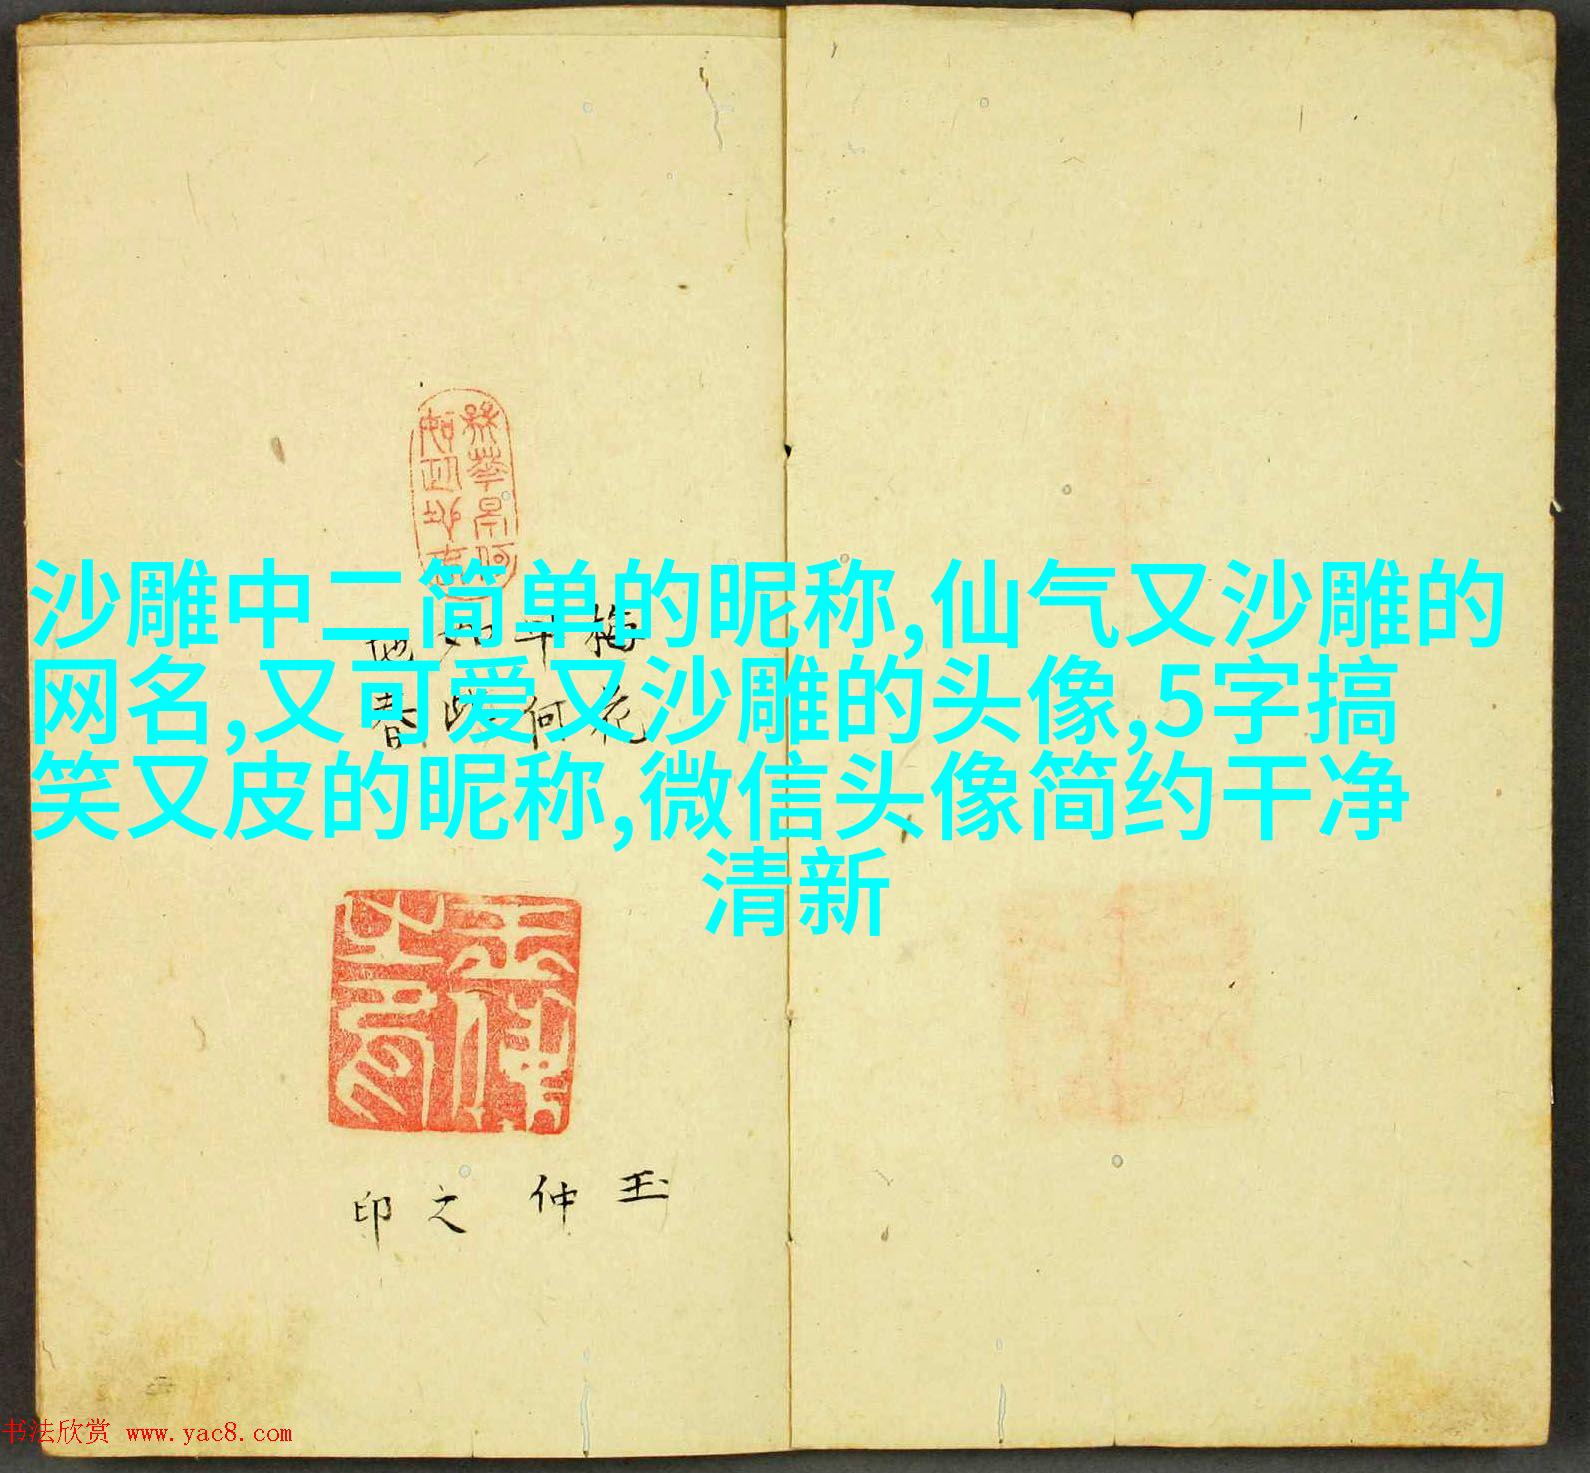 沙雕中二简单的昵称,仙气又沙雕的
网名,又可爱又沙雕的头像,5字搞
笑又皮的昵称,微信头像简约干净
清新
梅花
何
地春
玉仲之印
书法欣赏 www.yac8.com